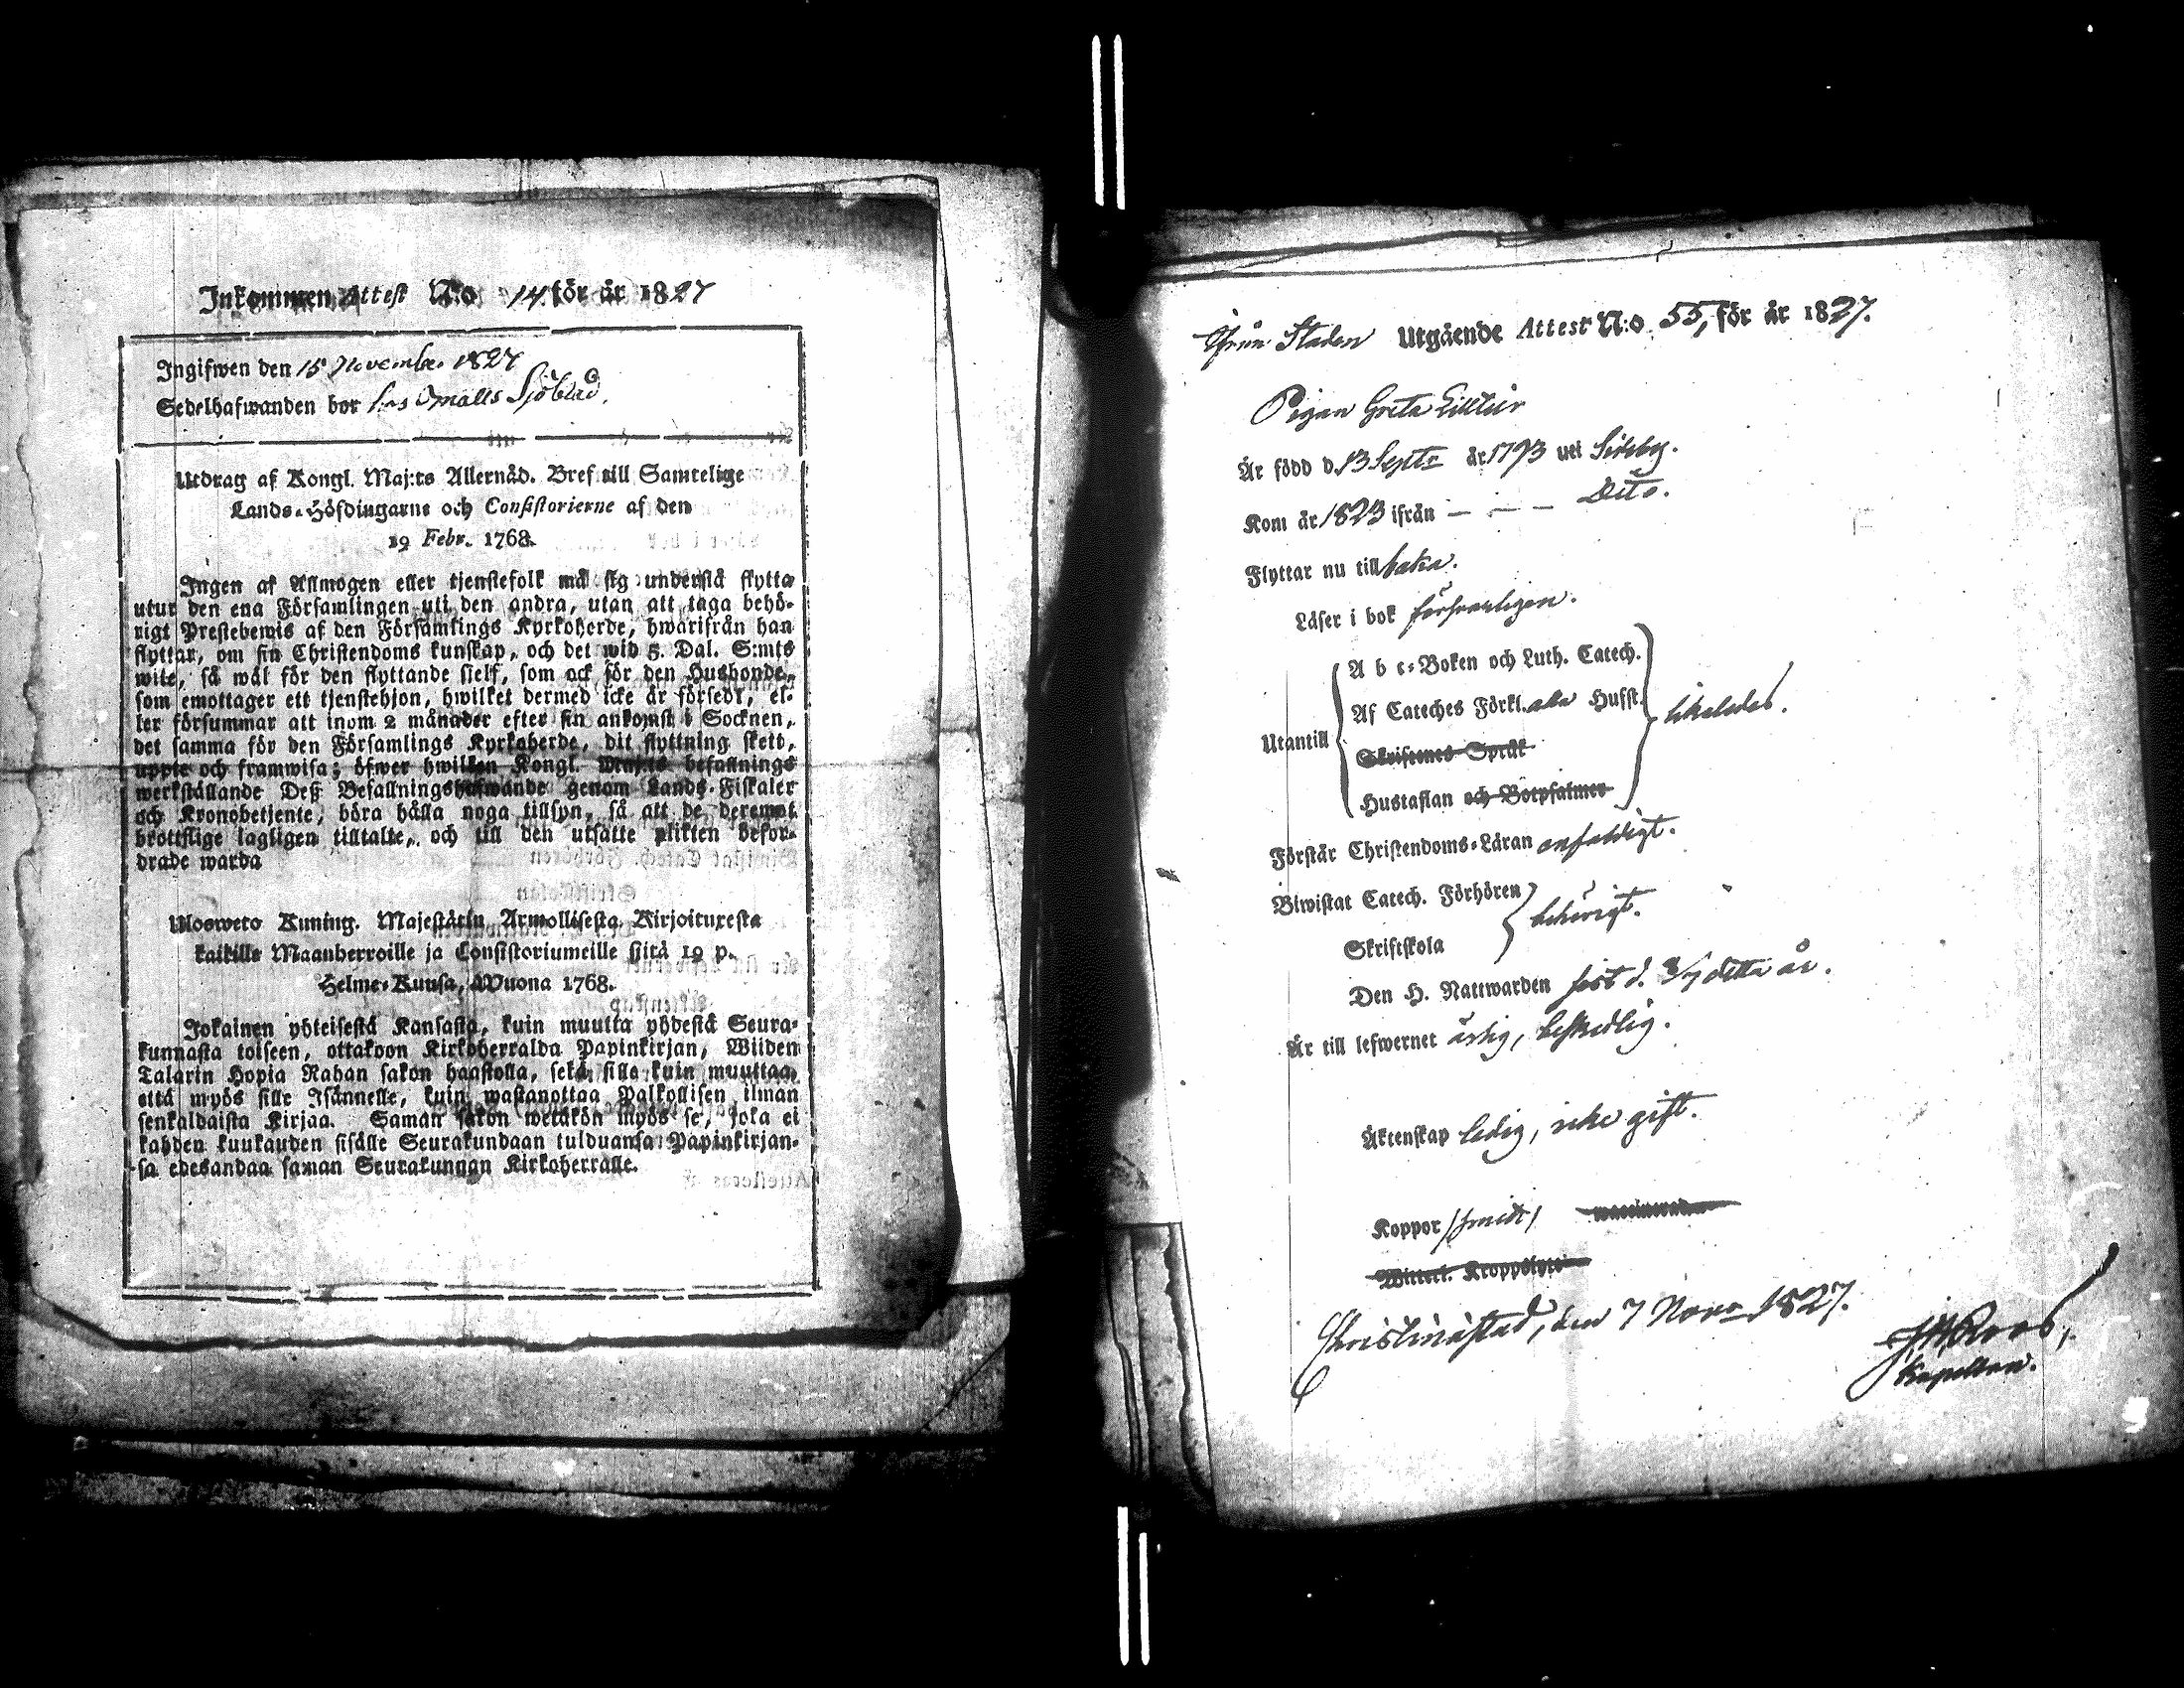 Inkommen Attest N:o 14. för år 1827
Ingifwen den 15 November 1827
Sedelhafwanden bor hos Sjöblad.
Utdrag af Kongl. Maj:ts Allernåd. Bref till Samtelige
Lands-Höfdingarne och Consistorierne af den
19 Febr. 1768.
Ingen af Allmogen eller tjenstefolk må sig understå flytta
utur den ena Församlingen uti den andra, utan att taga behö-
rigt Prestebewis af den Församlings Kyrkoherde, hwarifrån han
flyttar, om sin Christendoms kunskap, och det wid 5. Dal. S:mts
wite, så wäl för den flyttande sielf, som ock för den Husbonde,
som emottager ett tjenstehjon, hwilket dermed icke är försedt, el-
ler försummar att inom 2 månader efter sin ankomst i Socknen,
det samma för den Församlings Kyrkoherde, dit flyttning skett,
uppte och framwisa; öfwer hwilken Kongl. Maj:ts befallnings
werkställande Deß Befallningshafwande genom Lands-Fiskaler
och Kronobetjente, böra hålla noga tillsyn, så att de deremot
brottslige lagligen tilltalte, och till den utsatte plikten befor-
drade warda
Ulosweto Kuning. Majestätin Armollisesta Kirjoituxesta
kaikille Maanherroille ja Consistoriumeille siitä 19 p.
Helme-Kuusa, Wuona 1768.
Jokainen yhteisestä Kansasta, kuin muutta yhdestä Seura-
kunnasta toiseen, ottakoon Kirkoherralda Papinkirjan, Wiiden
Talarin Hopia Rahan sakon haastolla, sekä sille kuin muuttaa,
että myös sille Isännelle, kuin wastanottaa Palkollisen ilman
senkaldaista Kirjaa. Saman sakon wetäkön myös se, joka ei
kahden kuukauden sisälle Seurakundaan tulduansa Papinkirjan-
sa edesandaa saman Seurakunnan Kirkoherralle.
Från Staden Utgående Attest N:o 55, för år 1827.
Pigan Greta
Är född d. 13 Septr år 1793 uti Sideby.
Kom år 1823 ifrån — — — Dito.
Flyttar nu tillbaka.
Läser i bok försvarligen.
Utantill
A b c-Boken och Luth. Catech.
Af Cateches Förkl. utan Hufst.
Skriftenes Språk
Hustaflan och Botpsalmer
likaledes.
Förstår Christendoms-Läran enfaldigt.
Biwistat Catech. Förhören
Skriftskola
behörigt.
Den H. Nattwarden sist d. detta år.
Är till lefwernet ärlig, beskedlig.
Äktenskap ledig, icke gift.
Koppor
Witterl. Kroppslyte
Christinæstad, den 7 Novr 1827.
Roos,
Kapellan.